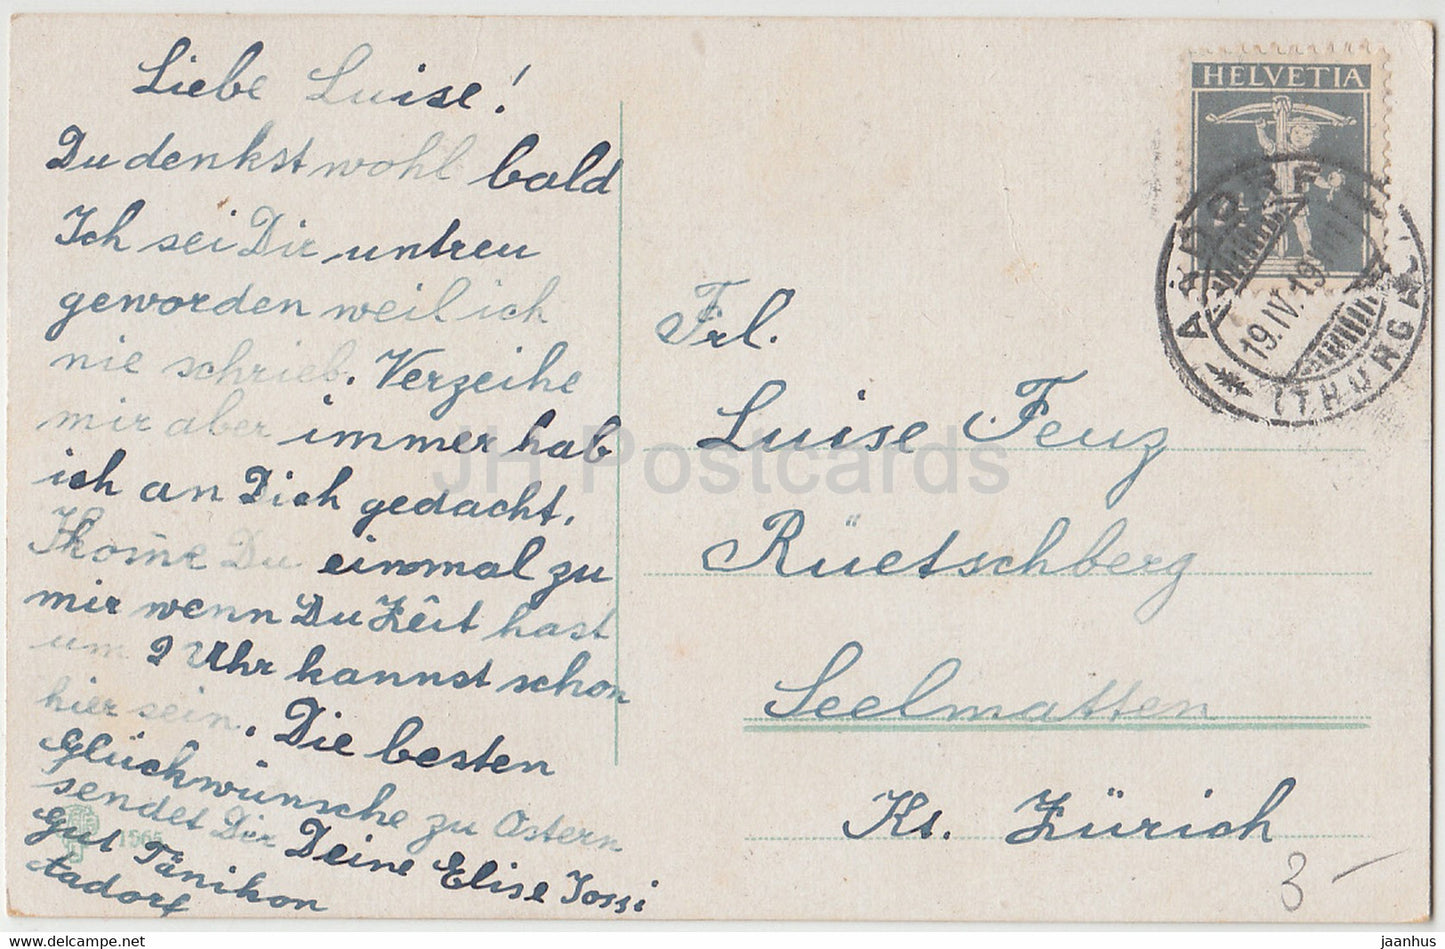 Liebe Luise!
Du denkst wohl bald
Ich sei Dir untreu
geworden weil ich
nie schrieb. Verzeihe
mir aber immer hab
ich an Dich gedacht.
Kom̄e Du einmal zu
mir wenn Du Zeit hast
um 2 Uhr kannst schon
hier sein. Die besten
Glückwünsche zu Ostern
sendet Dir Deine Elise Jossi
Gut Tänikon
Aadorf
1565
HELVETIA
AADORF
19.IV.19
(THURGAU)
Frl.
Luise Feuz
Rüetschberg
Seelmatten
Kt. Zürich
3 –
JH Postcards
jaanhus